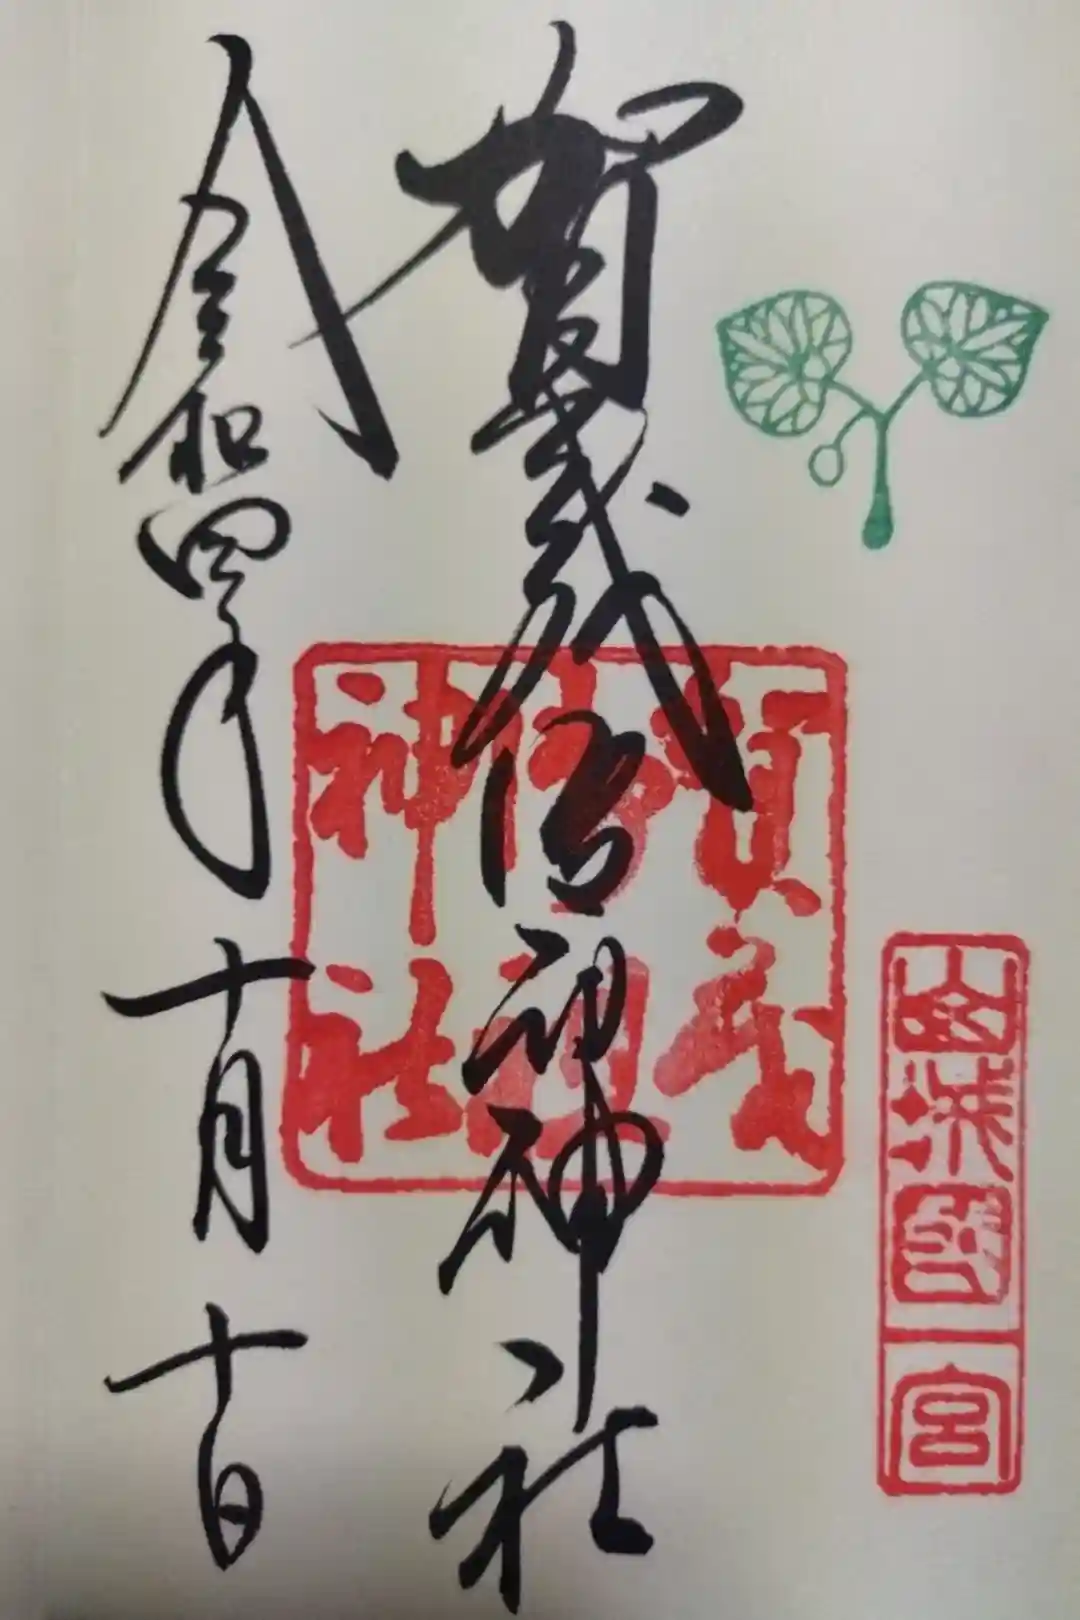 山城國一宮
賀茂御祖神社
賀茂
御祖
神社
令和四年十月十日